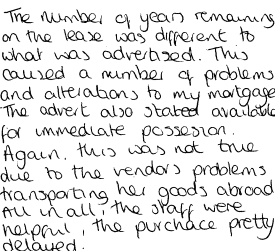 The number of years remaining
on the lease was different to
what was advertised. This
caused a number of problems
and alterations to my mortgage
The advert also stated available
for immediate possesion.
Again, this was not true
due to the vendors problems
transporting her goods abroad
All in all, the staff were
helpful, the purchace pretty
delayed.